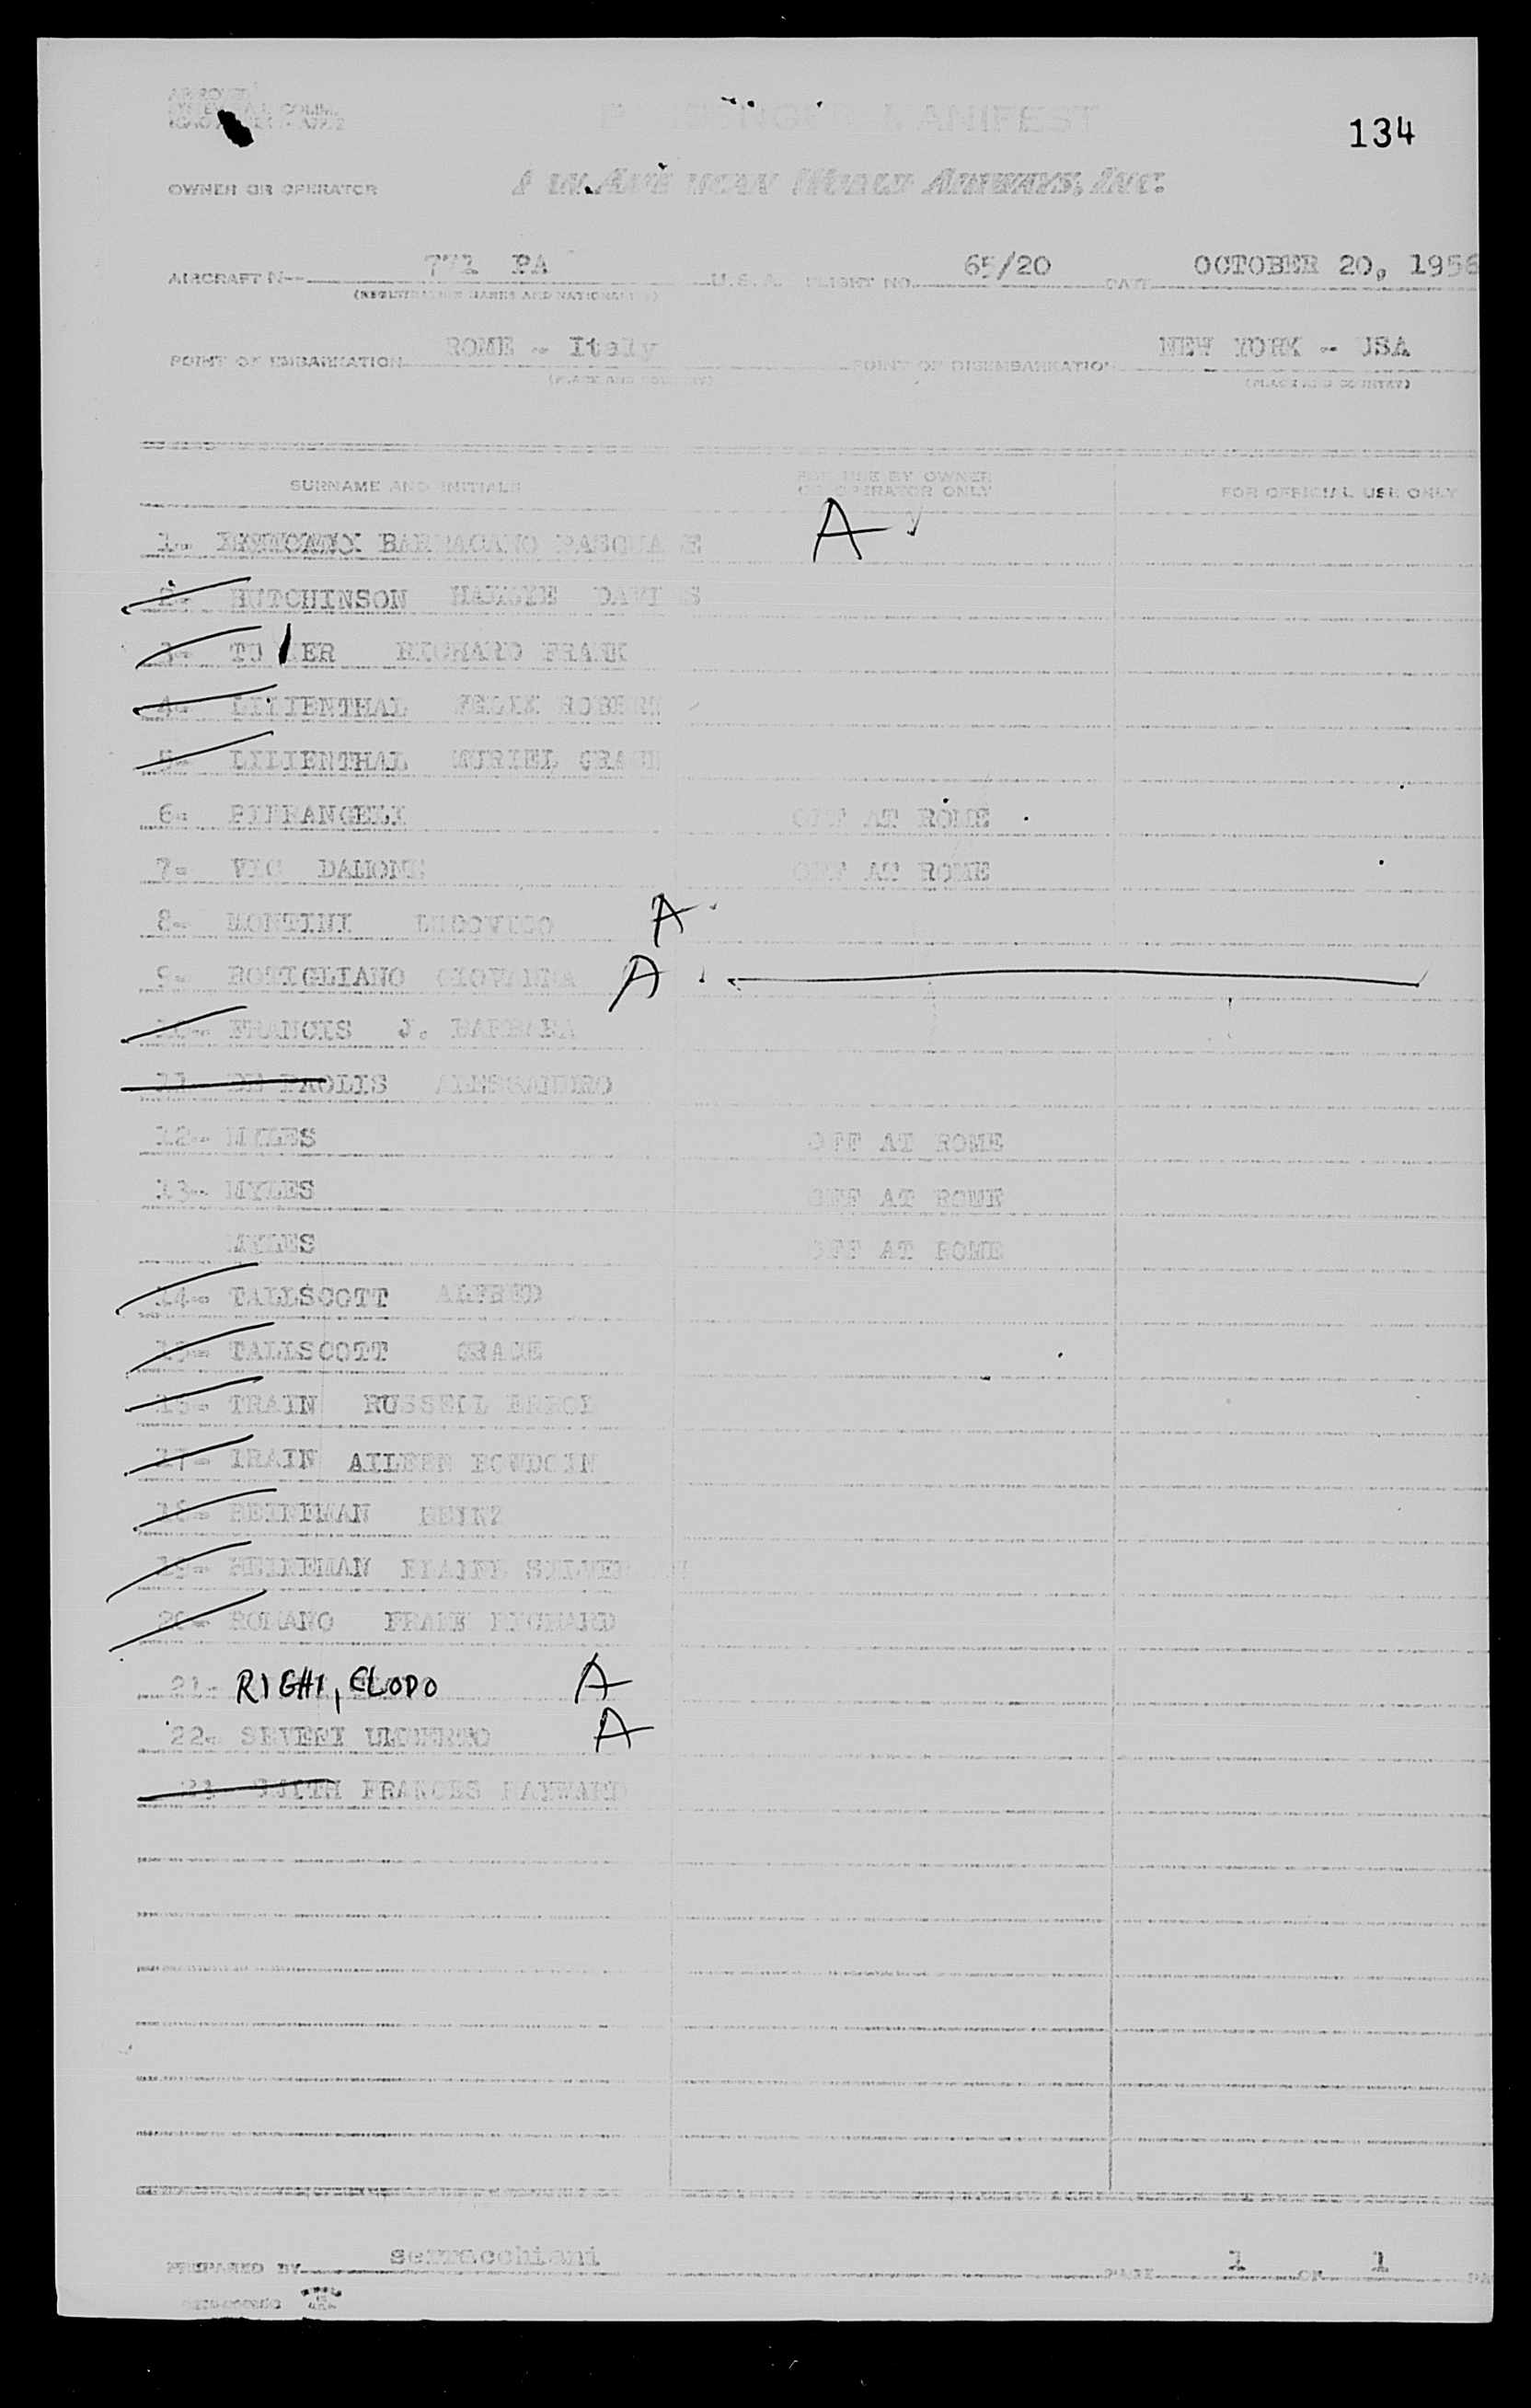 134
OWNER OR OPERATOR
AIRCRAFT N 771 PA U.S.A. FLIGHT NO. 65/20 DATE OCTOBER 20, 1956
POINT OF EMBARKATION ROME - Italy POINT OF DISEMBARKATION NEW YORK - USA
(PLACE AND COUNTRY) (PLACE AND COUNTRY)
SURNAME AND INITIALS FOR USE BY OWNER OR OPERATOR ONLY FOR OFFICIAL USE ONLY
1- BARRACANO PASQUALE A
2- HUTCHINSON DAVIS
3- RICHARD FRANK
4- LILIENTHAL FELIX ROBERT
5- LILIENTHAL MURIEL GRACE
6- PIERANGELI OFF AT ROME
7- VIC DAMONE OFF AT ROME
8- MONTINI LUDOVICO A
9- GIOVANNA A
10- FRANCIS J. BARBARA
11- DE PAOLIS ALESSANDRO
12- MYLES OFF AT ROME
13- MYLES OFF AT ROME
MYLES OFF AT ROME
14- TALLSCOTT ALFRED
15- TALLSCOTT GRACE
16- TRAIN RUSSELL ERROL
17- TRAIN AILEEN BOWDOIN
18- HEINEMAN HEINZ
19- HEINEMAN ELAINE
20- ROMANO FRANK RICHARD
21- RIGHI, CLODO A
22- SEVERI A
23- SMITH FRANCES HAYWARD
PREPARED BY serracchiani PAGE 1 OF 1